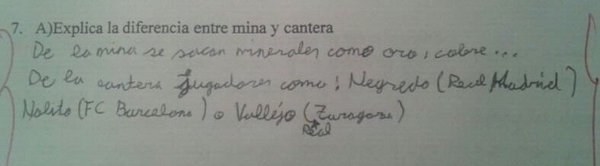 7. A)Explica la diferencia entre mina y cantera
De la mina se sacan minerales como oro, cobre...
De la cantera Jugadores como: Negredo (Real Madrid)
Nolito (FC Barcelona) o Vallejo (Zaragoza)
Real